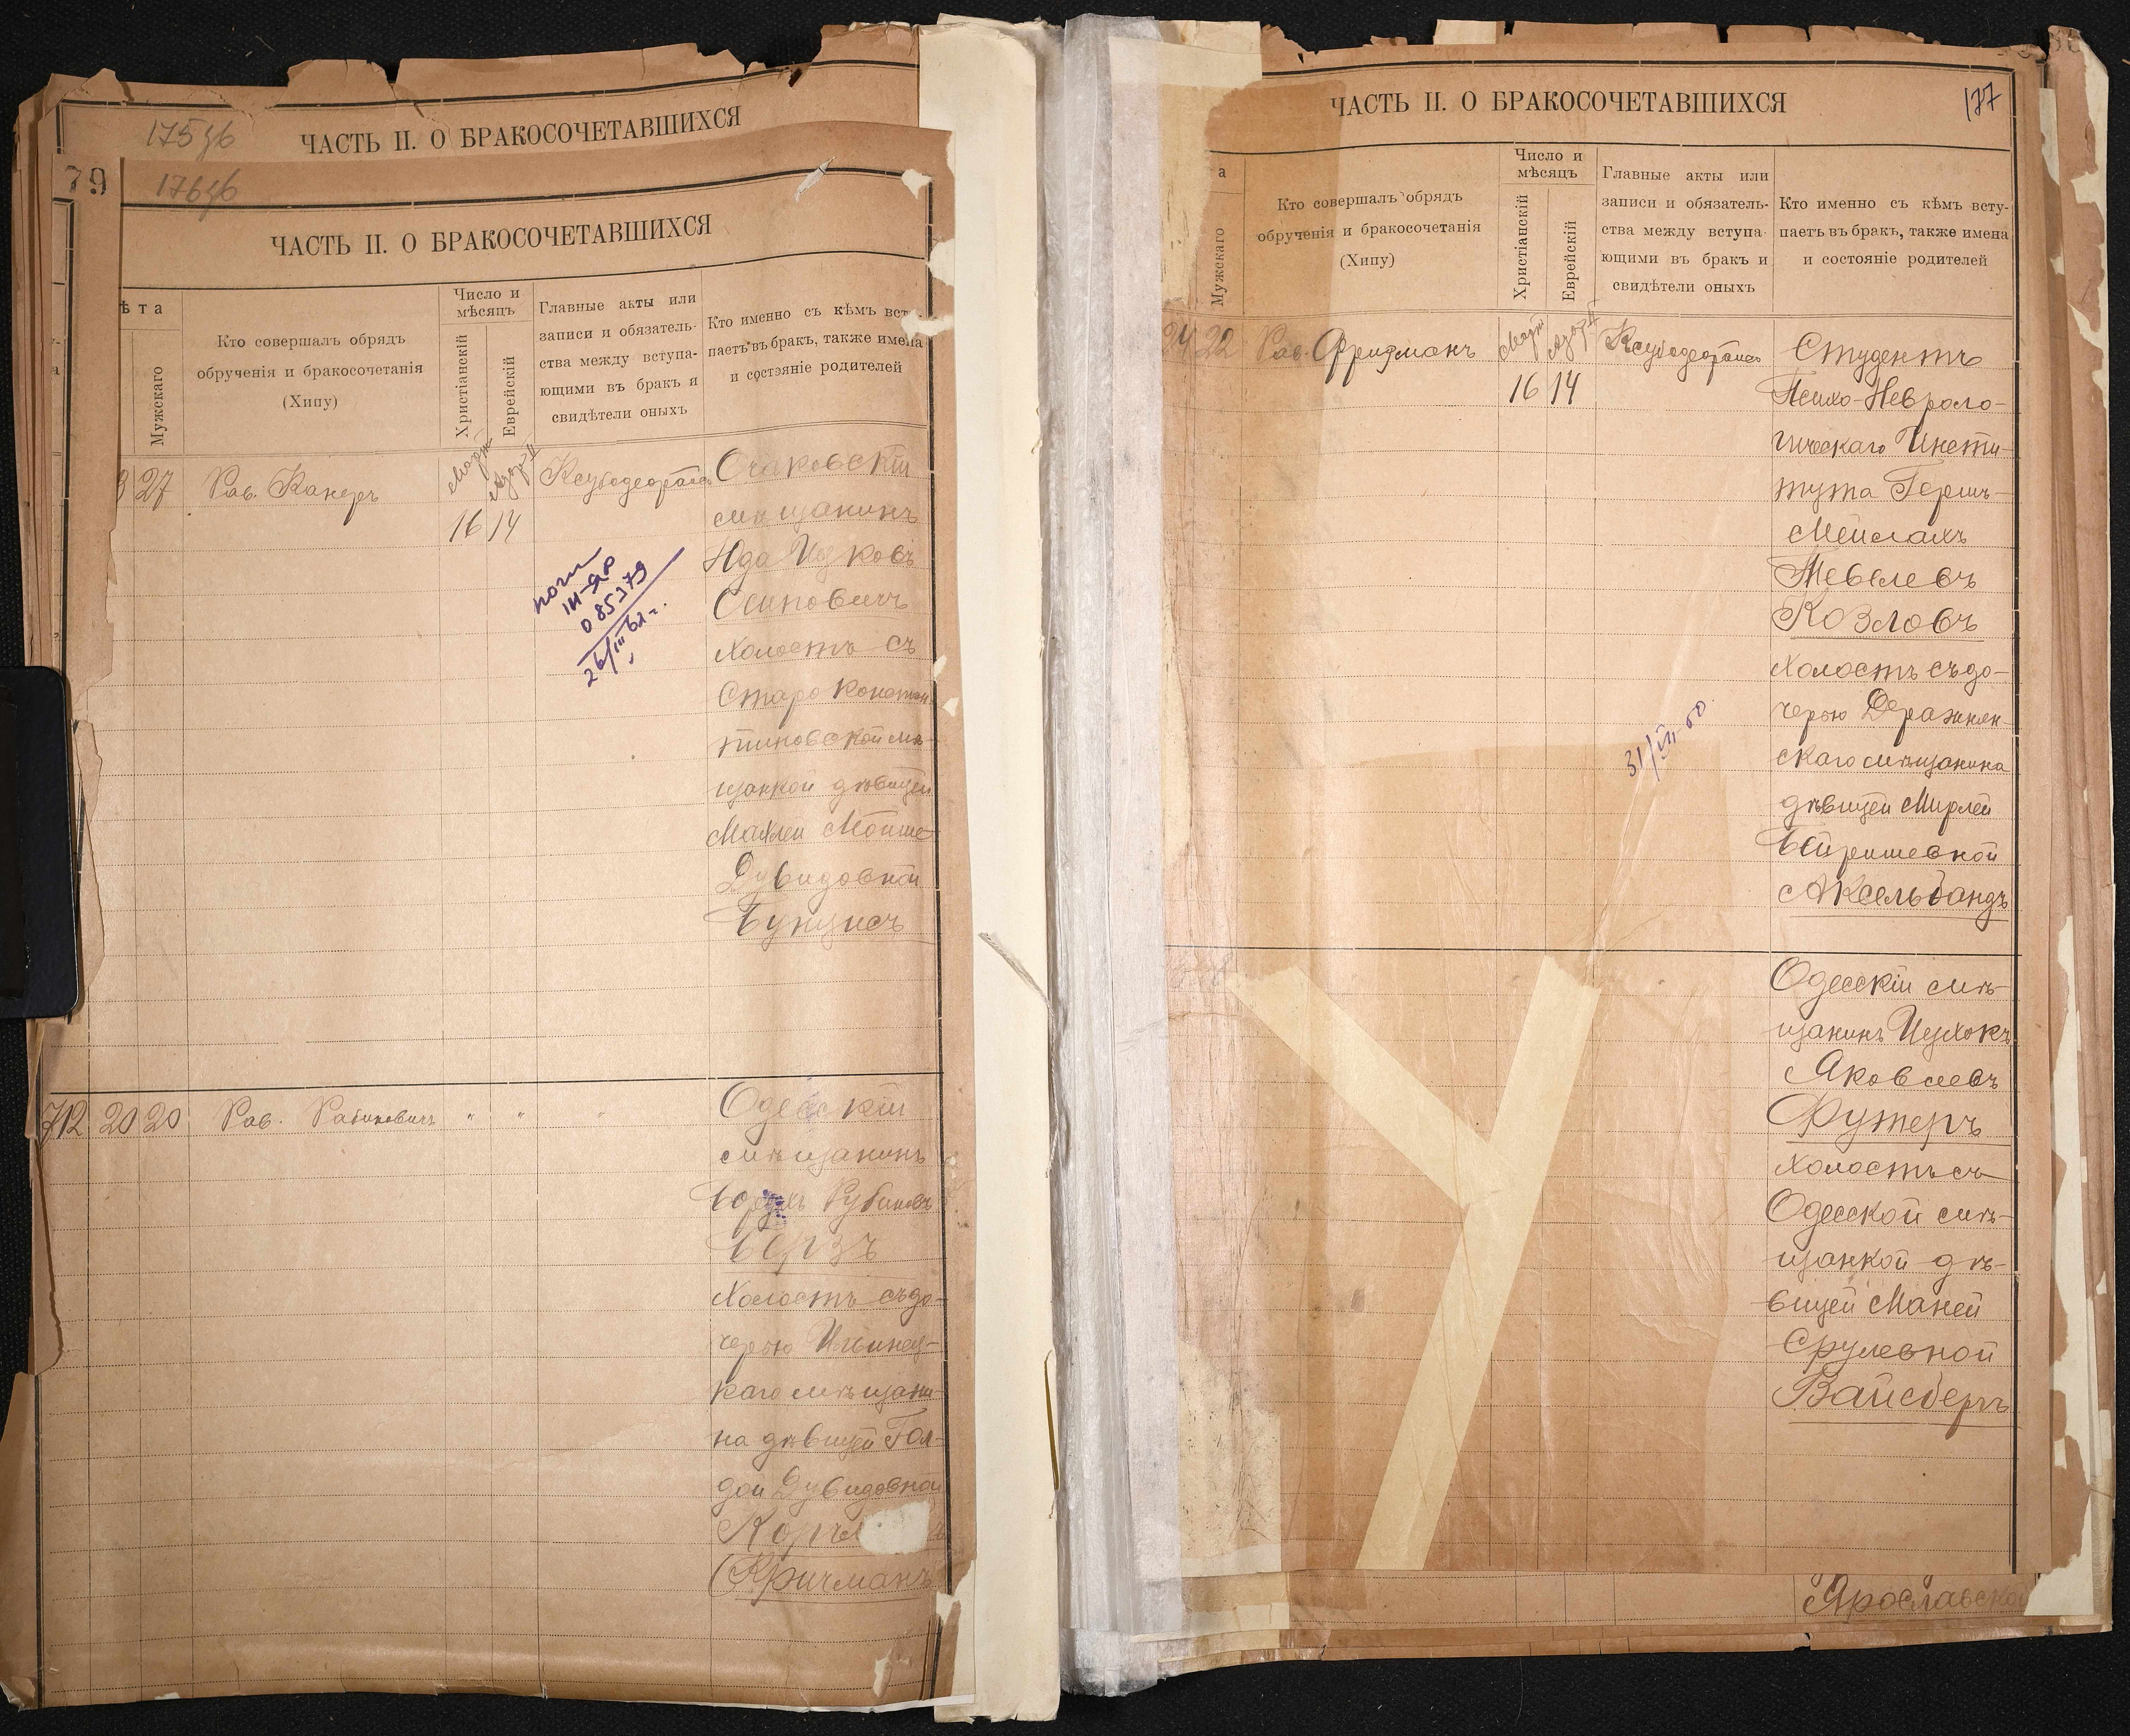 175 зб
ЧАСТЬ II. О БРАКОСОЧЕТАВШИХСЯ
79
176 зб
ЧАСТЬ II. О БРАКОСОЧЕТАВШИХСЯ
ѣта
Мужскаго
Кто совершалъ обрядъ
обрученія и бракосочетанія
(Хипу)
Число и
мѣсяцъ
Христіанскій
Еврейскій
Главные акты или
записи и обязатель-
ства между вступа-
ющими въ бракъ и
свидѣтели оныхъ
Кто именно съ кѣмъ всту-
паетъ въ бракъ, также имена
и состояніе родителей
3 27 Рав. Канеръ
Мартъ
16 14
Очаковскій
мѣщанинъ
Юда Ицковъ
Осиповичъ
холостъ съ
Старо Констан
тиновской мѣ-
щанкой дѣвицей
Малей Мойше
Дувидовной
Бунцисъ
III-ЯР
085379
26/III 61 г.
712 20 20 Рав. Рабиновичъ " " "
Одесскій
мѣщанинъ
Рубиновъ
Берзъ
холостъ съ до-
черью Ильинец-
каго мѣщани-
на дѣвицей Гол-
дой Дувидовной
(Кричманъ
ЧАСТЬ II. О БРАКОСОЧЕТАВШИХСЯ
177
а
Мужскаго
Кто совершалъ обрядъ
обрученія и бракосочетанія
(Хипу)
Число и
мѣсяцъ
Христіанскій
Еврейскій
Главные акты или
записи и обязатель-
ства между вступа-
ющими въ бракъ и
свидѣтели оныхъ
Кто именно съ кѣмъ всту-
паетъ въ бракъ, также имена
и состояніе родителей
24 22 Рав. Фридманъ
Мартъ
16 14
Студентъ
Психо-Невроло-
гическаго Инсти-
тута Гершъ-
Мейлахъ
Тевелевъ
Козловъ
холостъ съ до-
черью Деражнян-
скаго мѣщанина
дѣвицей Мирлей
Беришевной
Аксельбандъ
31/III-60.
Одесскій мѣ-
щанинъ Ицхокъ
Яковлевъ
Футеръ
холостъ съ
Одесской мѣ-
щанкой дѣ-
вицей Маней
Срулевной
Вайсбергъ
Ярославской